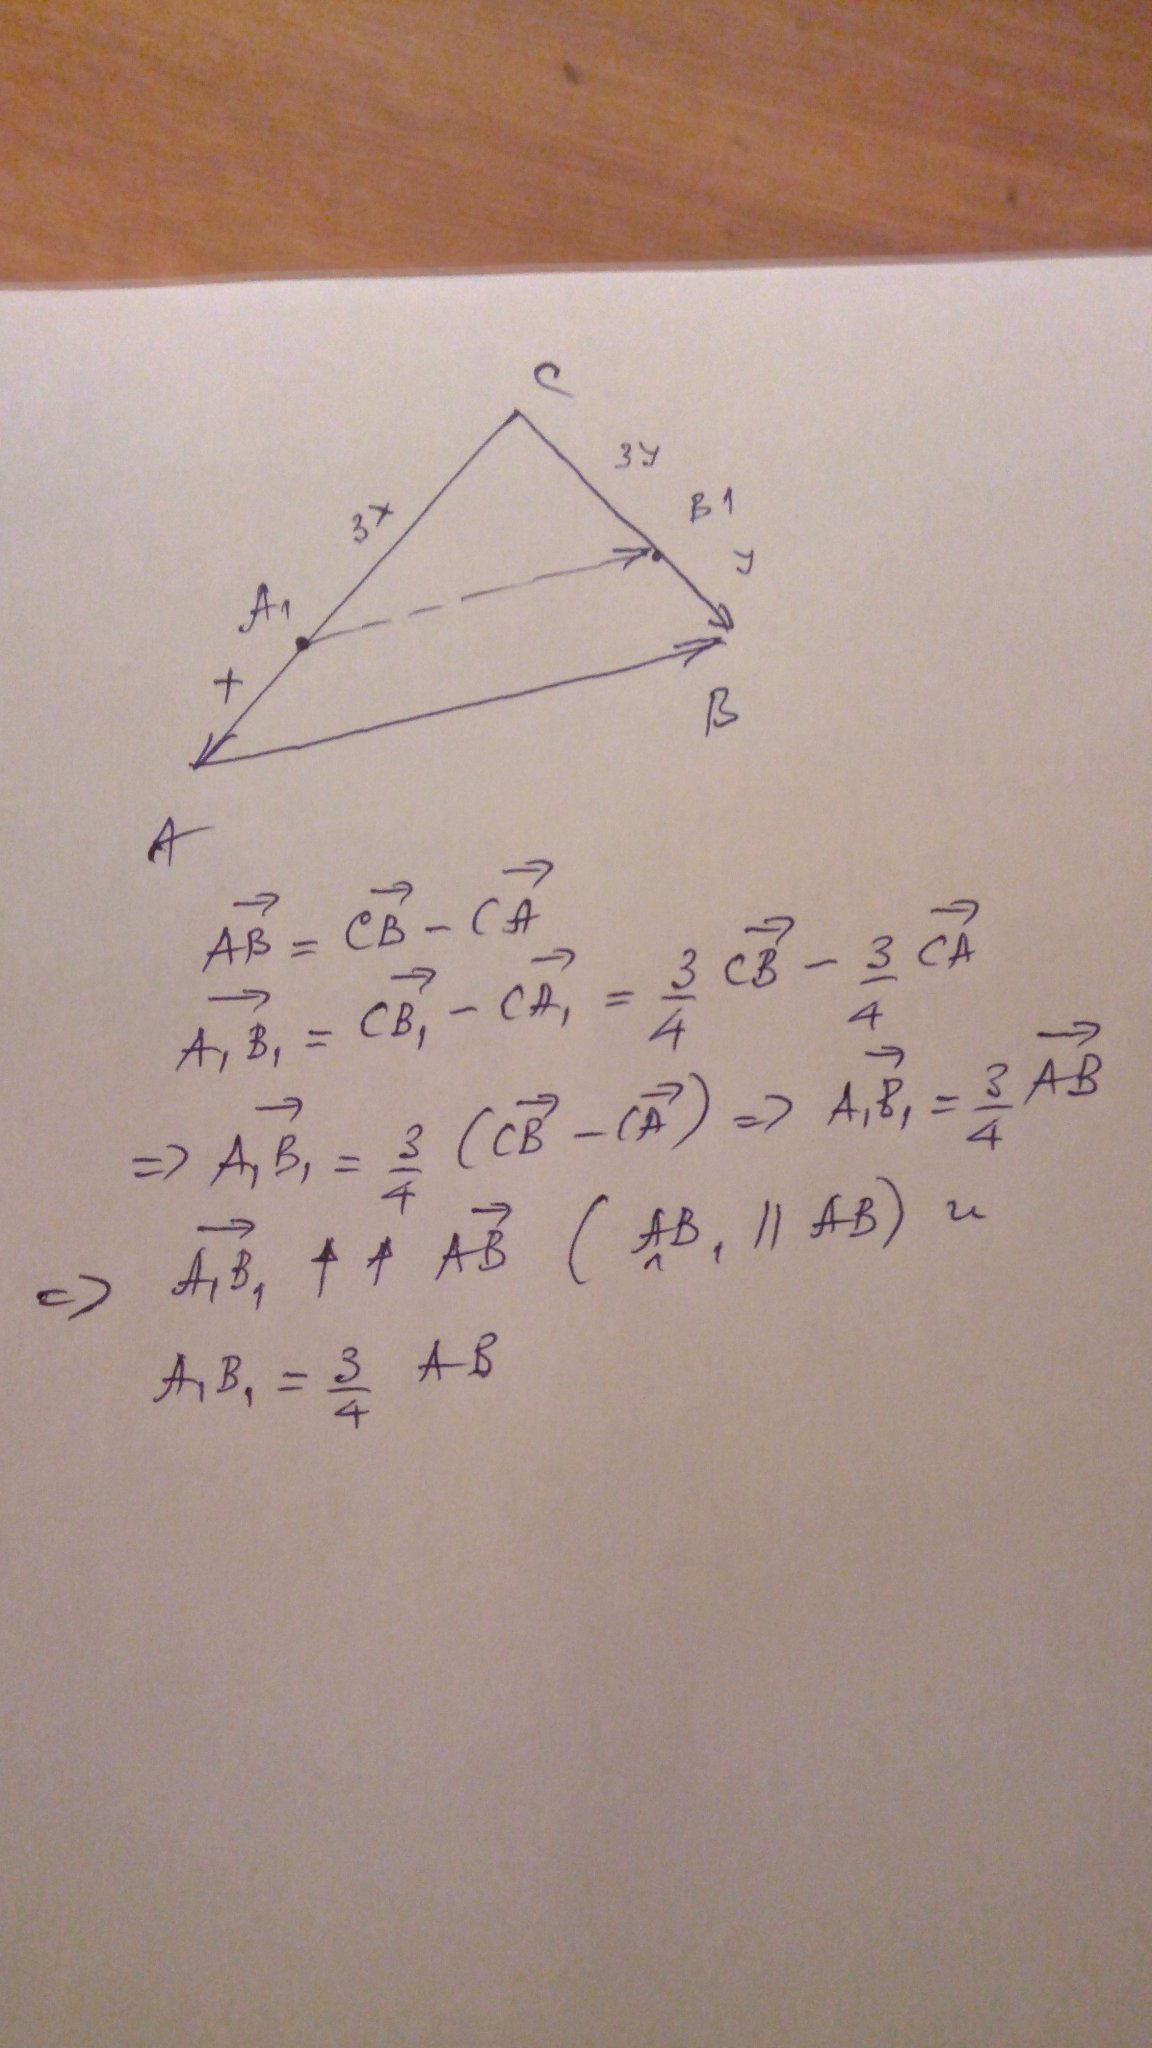 C
3y
B1
3x
y
A₁
x
B
A
→AB = →CB − →CA
→A₁B₁ = →CB₁ − →CA₁ = 3/4 →CB − 3/4 →CA
=> →A₁B₁ = 3/4 (→CB − →CA) => →A₁B₁ = 3/4 →AB
=> →A₁B₁ ↑↑ →AB (A₁B₁ || AB) и
A₁B₁ = 3/4 AB